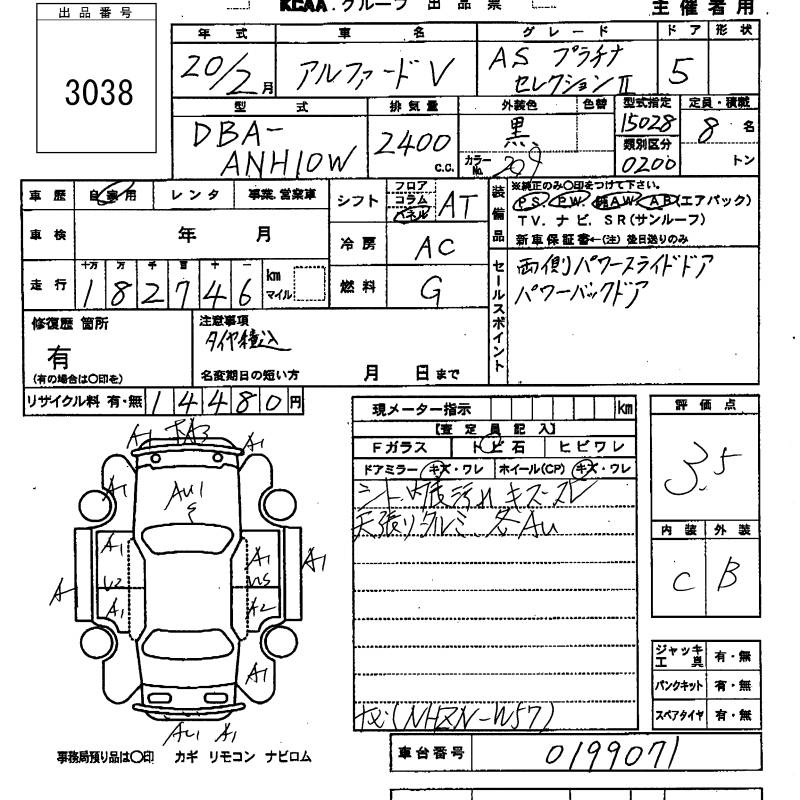 出品番号
3038
KCAA.グループ 出品票
主催者用
年式 車名 グレード ドア 形状
20/2月 アルファードV AS プラチナ セレクションⅡ 5
型式 排気量 外装色 色替 型式指定 定員・積載
DBA-ANH10W 2400 C.C. 黒 15028 8名
カラーNo. 209 類別区分 0200 トン
車歴 自家用 レンタ 事業、営業車
シフト フロア コラム パネル AT
装備品 ※純正のみ〇印をつけて下さい。
PS. PW. 純AW. AB(エアバック)
TV. ナビ. SR(サンルーフ)
新車保証書←(注) 後日送りのみ
車検 年 月
冷房 AC
走行 十万 万 千 百 十 一
182746 km マイル
燃料 G
セールスポイント 両側パワースライドドア
パワーバックドア
修復歴 箇所
有
(有の場合は〇印を)
注意事項
タイヤ積込
名変期日の短い方 月 日まで
リサイクル料 有・無 14480円
現メーター指示 km
【査定員記入】
Fガラス トビ石 ヒビワレ
ドアミラー キズ・ワレ ホイール(CP) キズ・ワレ
シート 内装汚れ キズ・スレ
天張りタルミ 各AU
(NHZN-W57)
評価点
3.5
内装 外装
C B
ジャッキ工具 有・無
パンクキット 有・無
スペアタイヤ 有・無
車台番号 0199071
A1 A3 A1
A1 AU1 A1
A1 A1
A U2 U5 A1
A1 A2
A1
AU1 A1
事務局預り品は〇印 カギ リモコン ナビロム